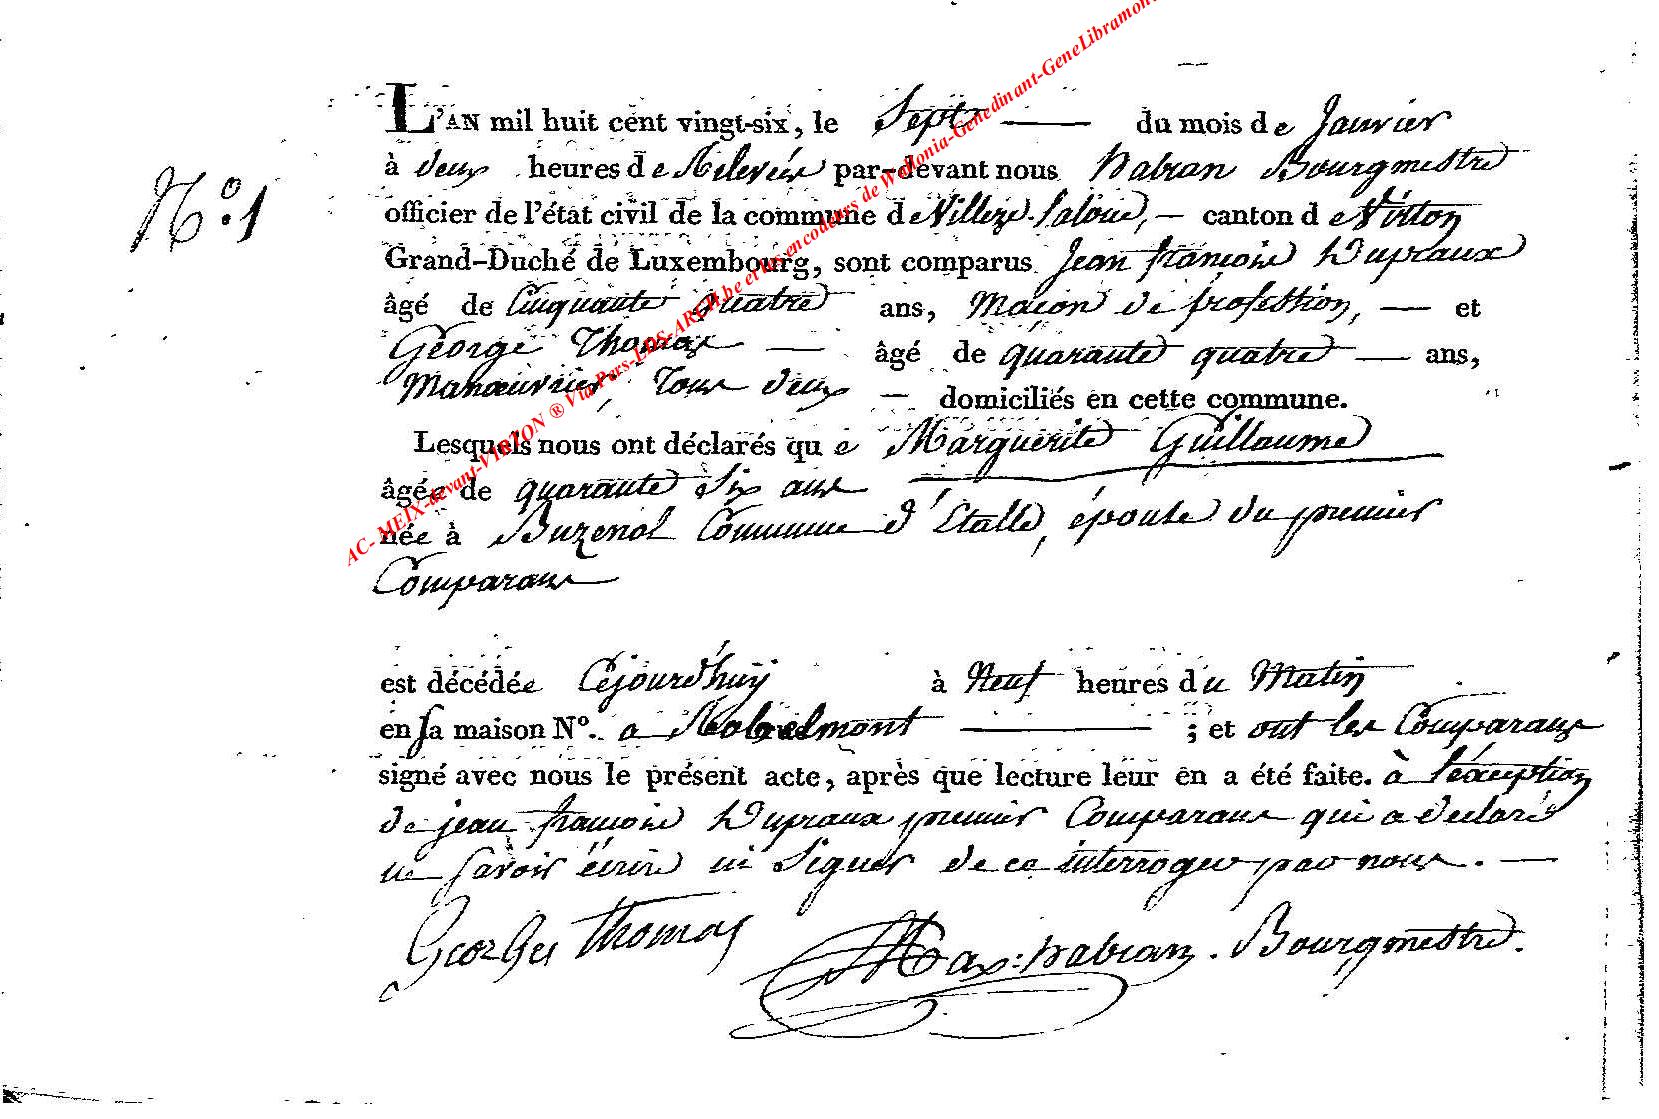 L'AN mil huit cent vingt-six, le Sept — du mois de Janvier
N.º 1
à deux heures de Relevée par-devant nous habran Bourgmestre
officier de l'état civil de la commune de Villers-laloue, — canton de Virton
Grand-Duché de Luxembourg, sont comparus Jean françois Dupraux
âgé de Cinquante quatre ans, Maçon de profession, — et
George Thomas — âgé de quarante quatre — ans,
Manœuvrier, Tous deux — domiciliés en cette commune.
Lesquels nous ont déclarés que Marguerite Guillaume
âgée de quarante Six ans
née à Buzenol Commune d'Etalle, épouse du premier
Comparans
est décédée Cejourd'huy à Neuf heures du Matin
en sa maison Nº. a Robelmont — ; et ont les Comparans
signé avec nous le présent acte, après que lecture leur en a été faite. à l'éxception
de jean françois Dupraux premier Comparans qui a declaré
ne savoir écrire ni Signer de ce interrogé par nous. —
Georges Thomas
Max: habran. Bourgmestre.
AC- MEIX-devant-VIRTON ® Via Pers-LDS-ARCH.be et les encodeurs de Wallonia-Genedinant-GeneLibramont